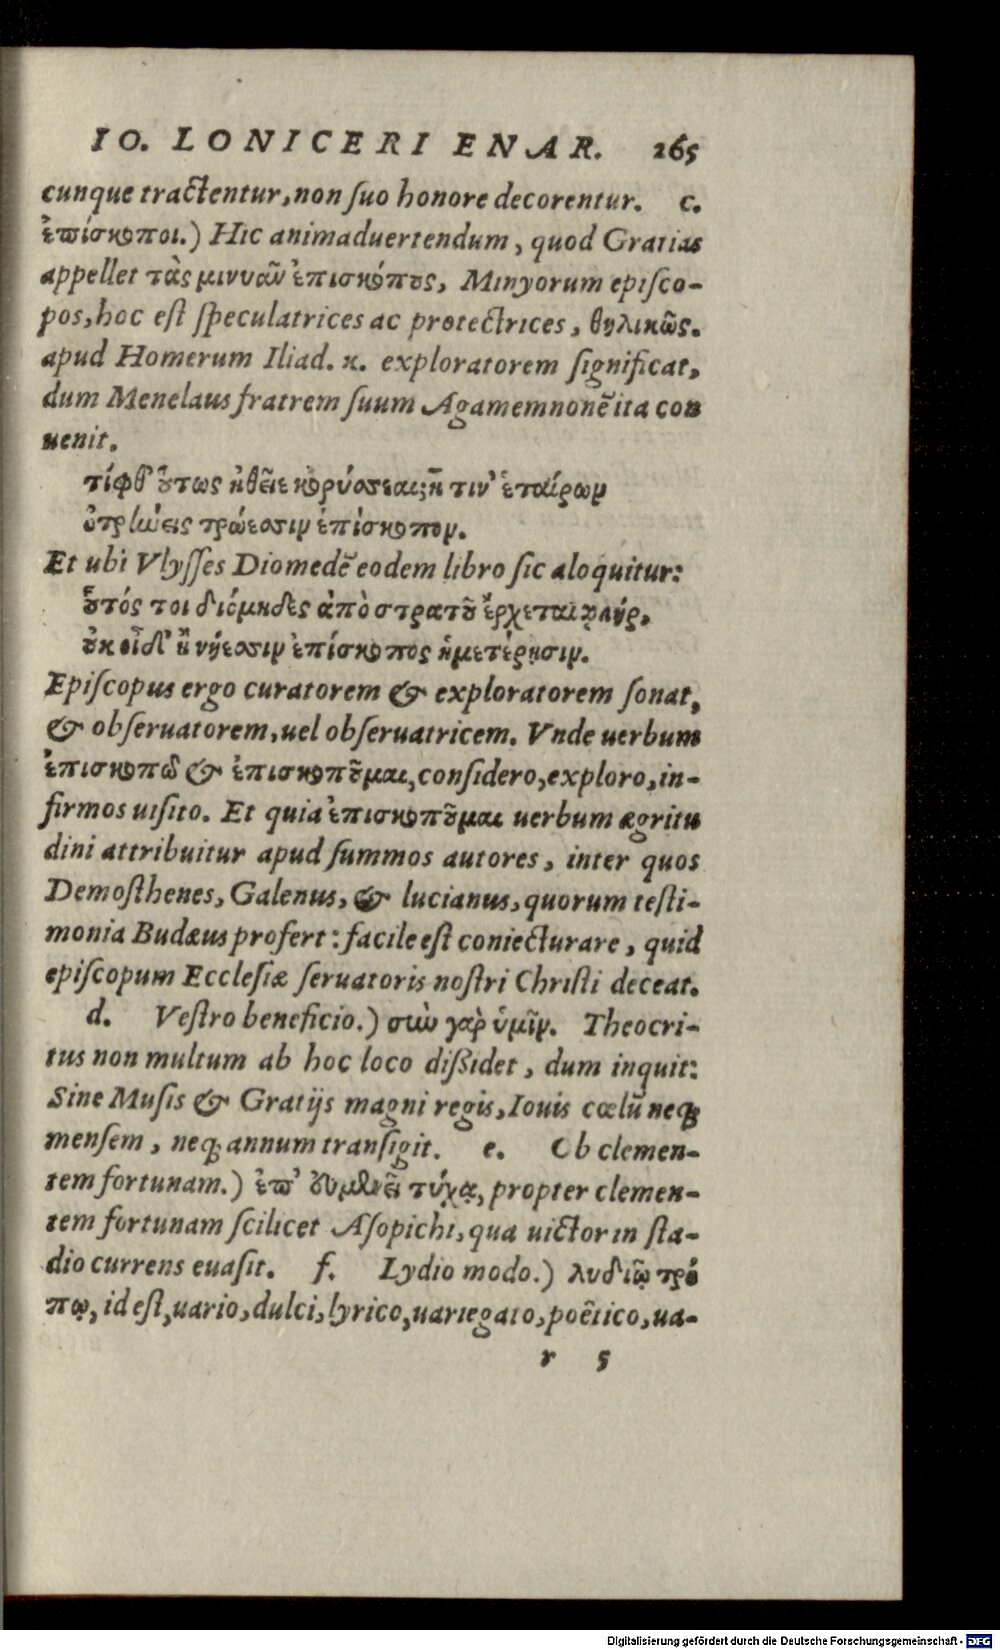 IO. LONICERI ENAR. 265
cunque tractentur, non ſuo honore decorentur. c.
ἐπίσκοποι.) Hic animaduertendum, quod Gratias
appellet τὰς μινυᾶν ἐπισκόπους, Minyorum epiſco-
pos, hoc eſt ſpeculatrices ac protectrices, θηλικῶς.
apud Homerum Iliad. κ. exploratorem ſignificat,
dum Menelaus fratrem ſuum Agamemnonē ita con
uenit.
τίφθ' οὕτως ἠθεῖε κορύσσεαι; ἦ τιν' ἑταίρων
ὀτρωέεις τρώεσσιν ἐπίσκοπον.
Et ubi Vlyſſes Diomedē eodem libro ſic aloquitur:
οὗτός τοι διόμηδες ἀπὸ στρατοῦ ἔρχεται ἀνήρ,
οὐκ οἶδ' ἢ νήεσσιν ἐπίσκοπος ἡμετέρῃσιν.
Epiſcopus ergo curatorem & exploratorem ſonat,
& obſeruatorem, uel obſeruatricem. Vnde uerbum
ἐπισκοπῶ & ἐπισκοποῦμαι, conſidero, exploro, in-
firmos uiſito. Et quia ἐπισκοποῦμαι uerbum ægritu
dini attribuitur apud ſummos autores, inter quos
Demoſthenes, Galenus, & lucianus, quorum teſti-
monia Budæus profert: facile eſt coniecturare, quid
epiſcopum Eccleſiæ ſeruatoris noſtri Chriſti deceat.
d. Veſtro beneficio.) σὺν γὰρ ὑμῖν. Theocri-
tus non multum ab hoc loco diſsidet, dum inquit:
Sine Muſis & Gratijs magni regis, Iouis cœlū neq;
menſem, neq; annum tranſigit. e. Ob clemen-
tem fortunam.) ἐπ' εὐμενεῖ τύχᾳ, propter clemen-
tem fortunam ſcilicet Aſopichi, qua uictor in ſta-
dio currens euaſit. f. Lydio modo.) λυδίῳ τρό
πῳ, id eſt, uario, dulci, lyrico, uariegato, poêtico, ua-
r 5
Digitalisierung gefördert durch die Deutsche Forschungsgemeinschaft - DFG